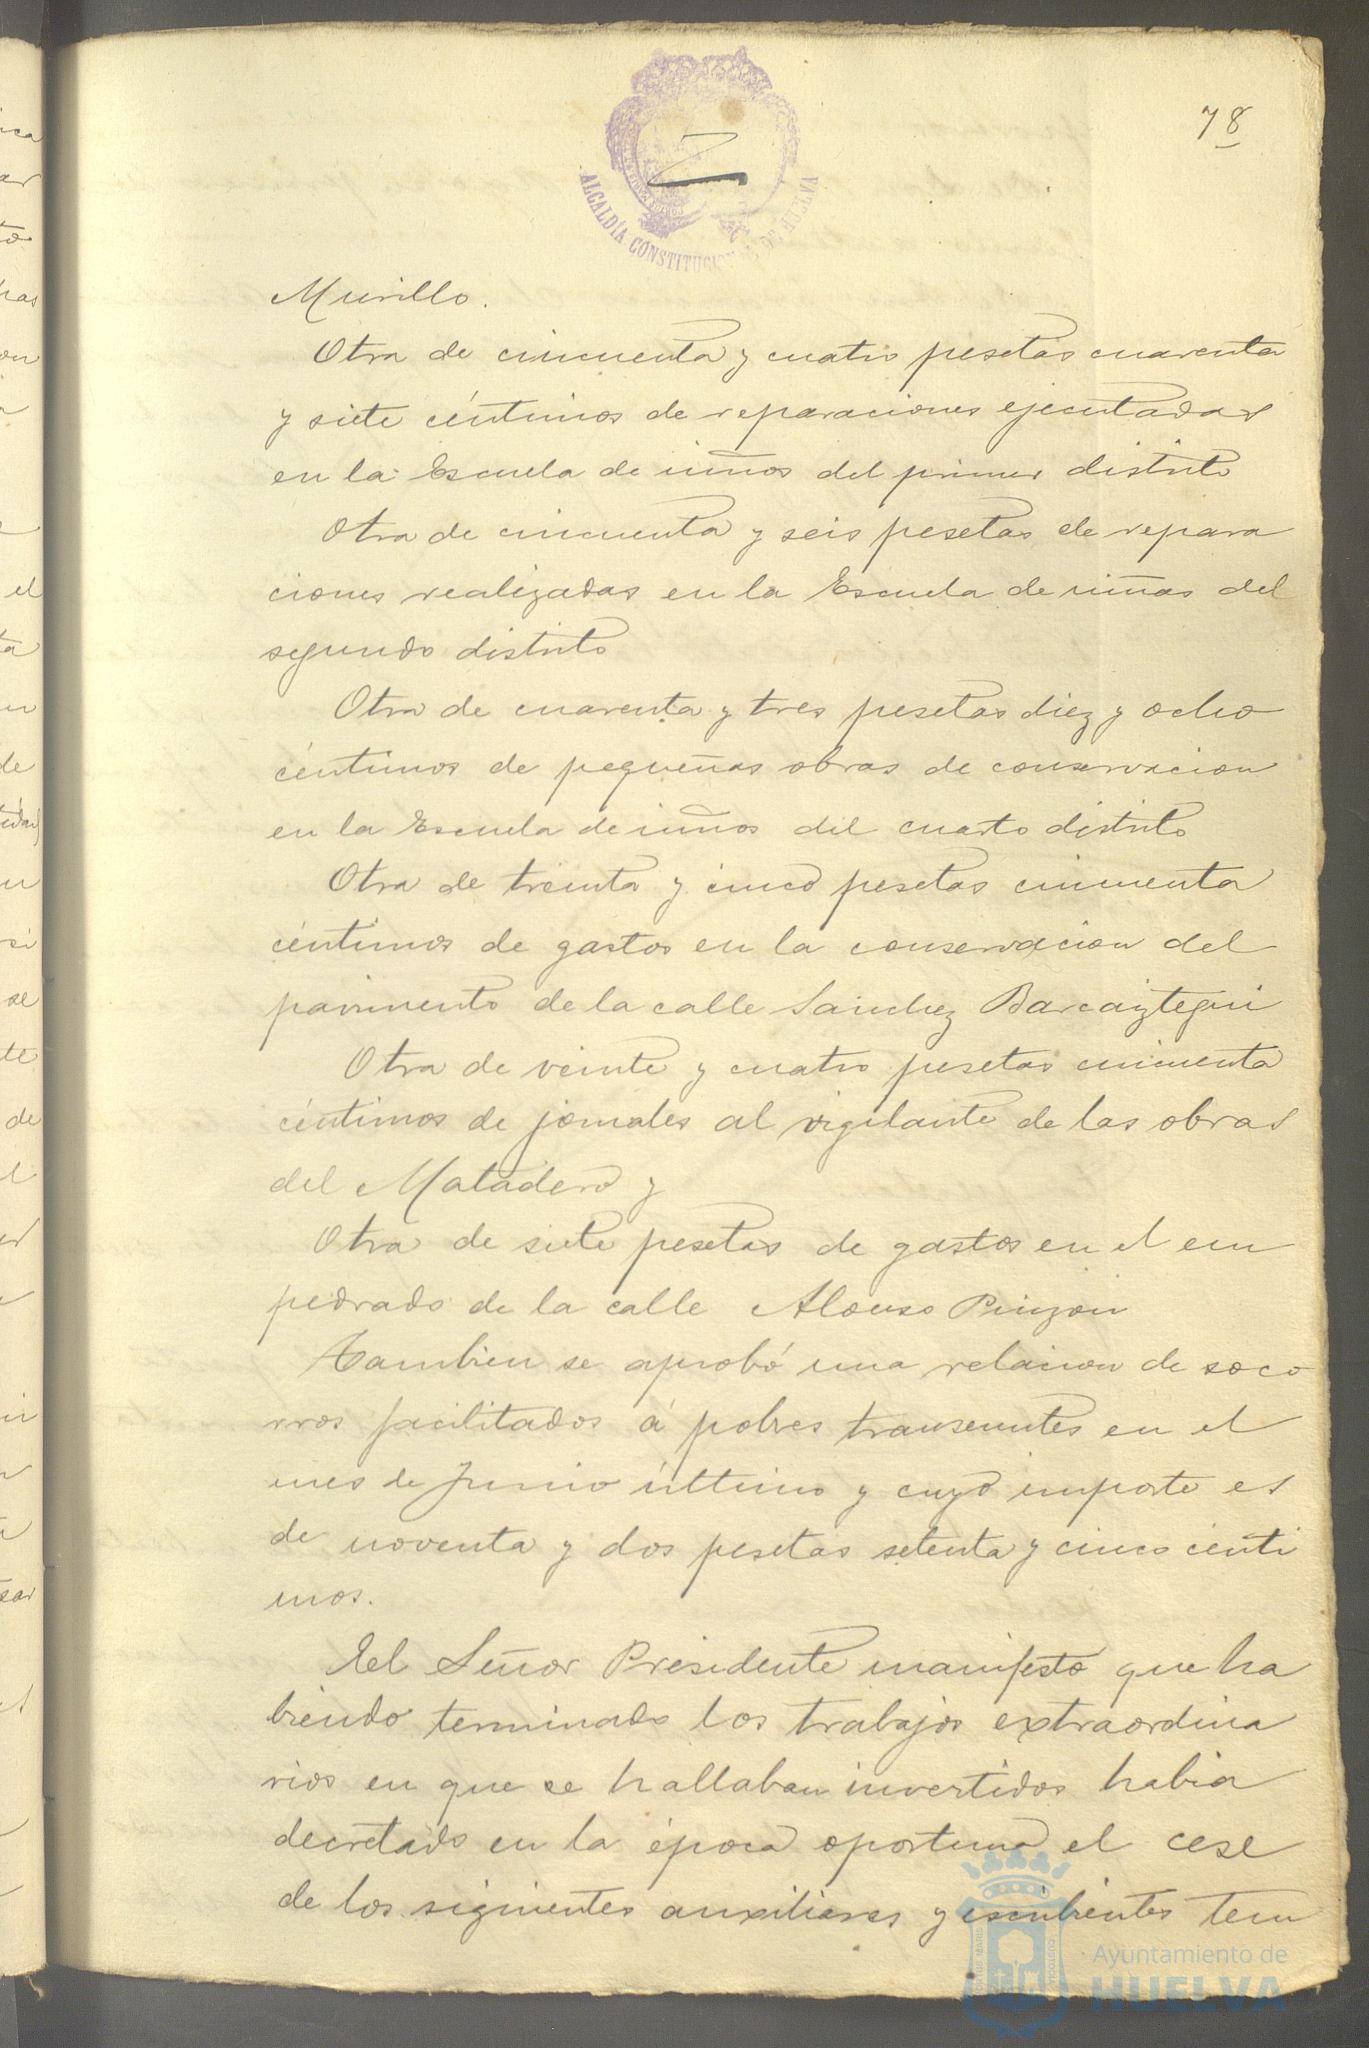 78
ALCALDÍA CONSTITUCIONAL DE HUELVA
Murillo.
Otra de cincuenta y cuatro pesetas cuarenta
y siete céntimos de reparaciones ejecutadas
en la Escuela de niños del primer distrito
Otra de cincuenta y seis pesetas de repara
ciones realizadas en la Escuela de niñas del
segundo distrito
Otra de cuarenta y tres pesetas diez y ocho
céntimos de pequeñas obras de conservacion
en la Escuela de niños del cuarto distrito
Otra de treinta y cinco pesetas cincuenta
céntimos de gastos en la conservacion del
pavimento de la calle Sanchez Barcaiztegui
Otra de veinte y cuatro pesetas cincuenta
céntimos de jornales al vigilante de las obras
del Matadero y
Otra de siete pesetas de gastos en el em
pedrado de la calle Alonso Pinzon
Tambien se aprobó una relacion de soco
rros facilitados á pobres transeuntes en el
mes de Junio último y cuyo importe es
de noventa y dos pesetas setenta y cinco cénti
mos.
El Señor Presidente manifestó que ha
biendo terminado los trabajos extraordina
rios en que se hallaban invertidos habia
decretado en la época oportuna el cese
de los siguientes auxiliares y escribientes tem
Ayuntamiento de
HUELVA